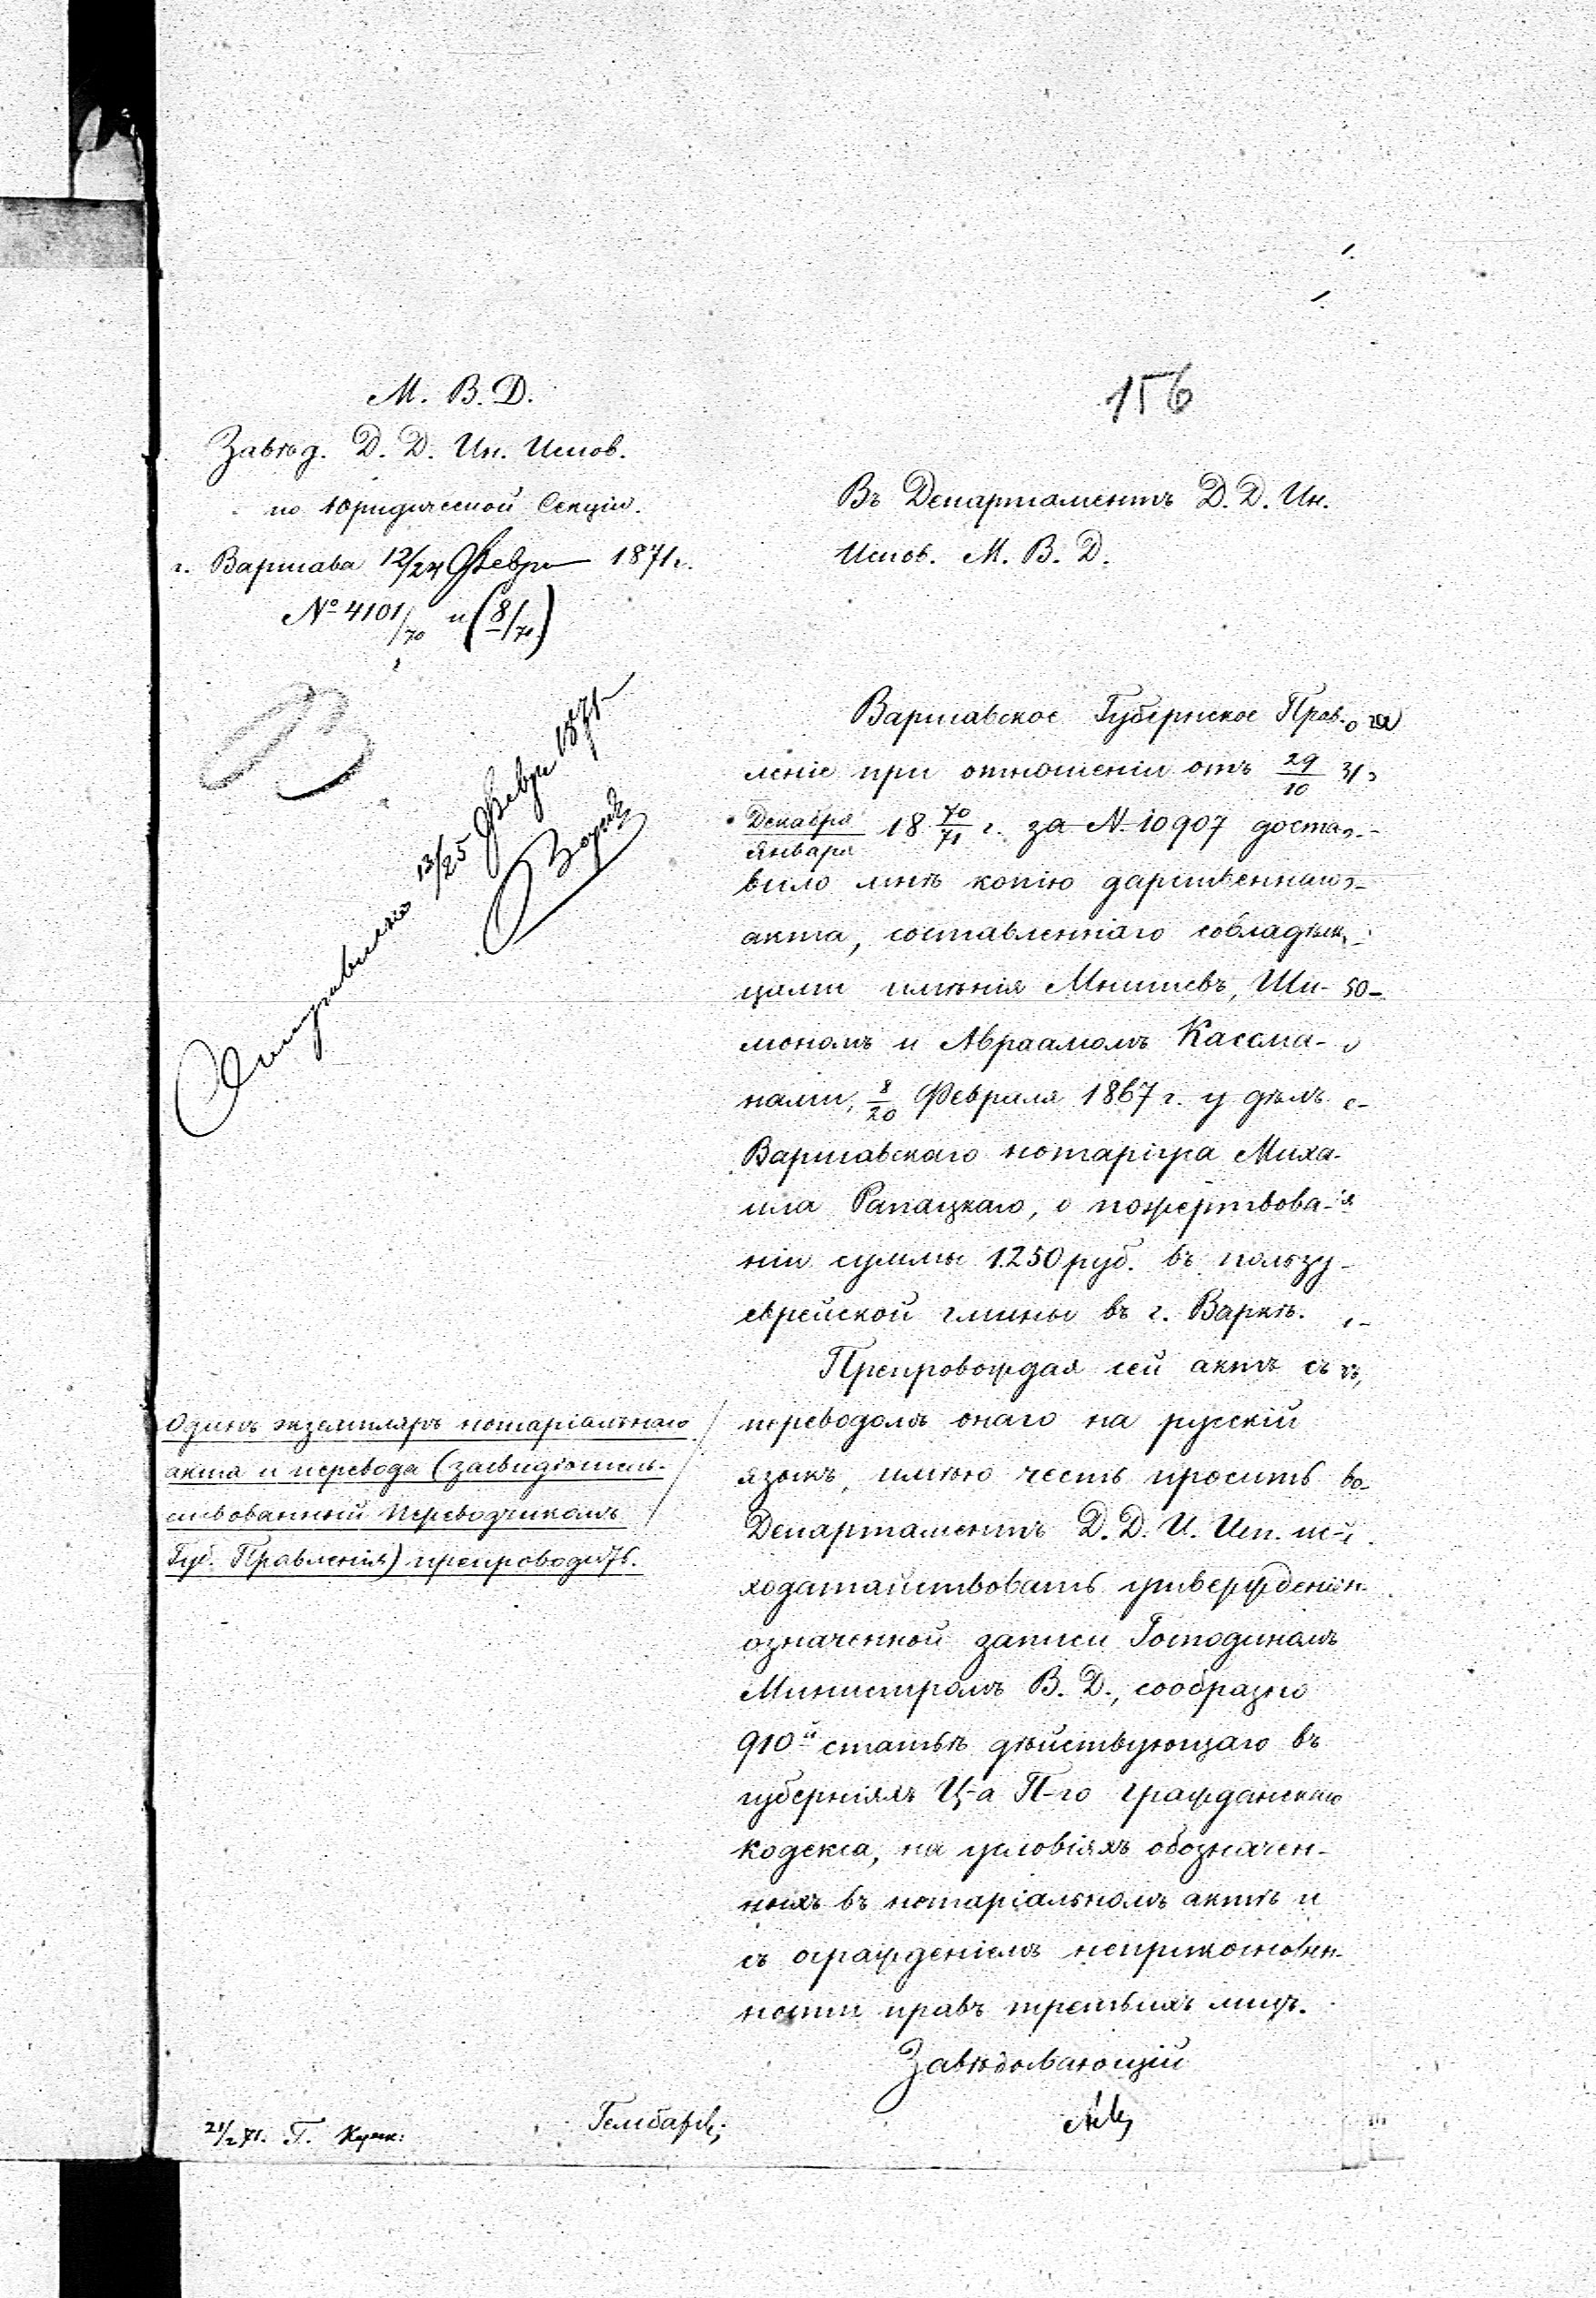 156
М. В. Д.
Завѣд. Д. Д. Ин. Испов.
по Юридической Секціи.
г. Варшава 12/24 Февр 1871 г.
№ 4101/70 и (8/71)
Въ Департаментъ Д. Д. Ин.
Испов. М. В. Д.
13/25 Февр 1871
Варшавское Губернское Прав-
леніе при отношеніи отъ 29/10
Декабря/Января 18 70/71 г. за N. 10907 доста-
вило мнѣ копію дарственнаго
акта, составленнаго совладѣль-
цами имѣнія Мнишевъ, Ши-
мономъ и Авраамомъ Кассма-
нами, 8/20 Февраля 1867 г. у дѣлъ
Варшавскаго нотаріуса Миха-
ила Рапацкаго, о пожертвова-
ніи суммы 1.250 руб. въ пользу
еврейской гмины въ г. Варкѣ.
Препровождая сей актъ съ
переводомъ онаго на русскій
языкъ, имѣю честь просить
Департаментъ Д. Д. И. Исп. ис-
ходатайствовать утвержденіе
означенной записи Господиномъ
Министромъ В. Д., сообразно
910й статьѣ дѣйствующаго въ
губерніяхъ Ц-а П-го гражданскаго
кодекса, на условіяхъ обозначен-
ныхъ въ нотаріальномъ актѣ и
съ огражденіемъ неприкосновен-
ности правъ третьихъ лицъ.
Завѣдывающій
Одинъ экземпляръ нотаріальнаго
акта и перевода (засвидѣтель-
ствованный Переводчикомъ
Губ. Правленія) препровод.
21/2 71. Г.